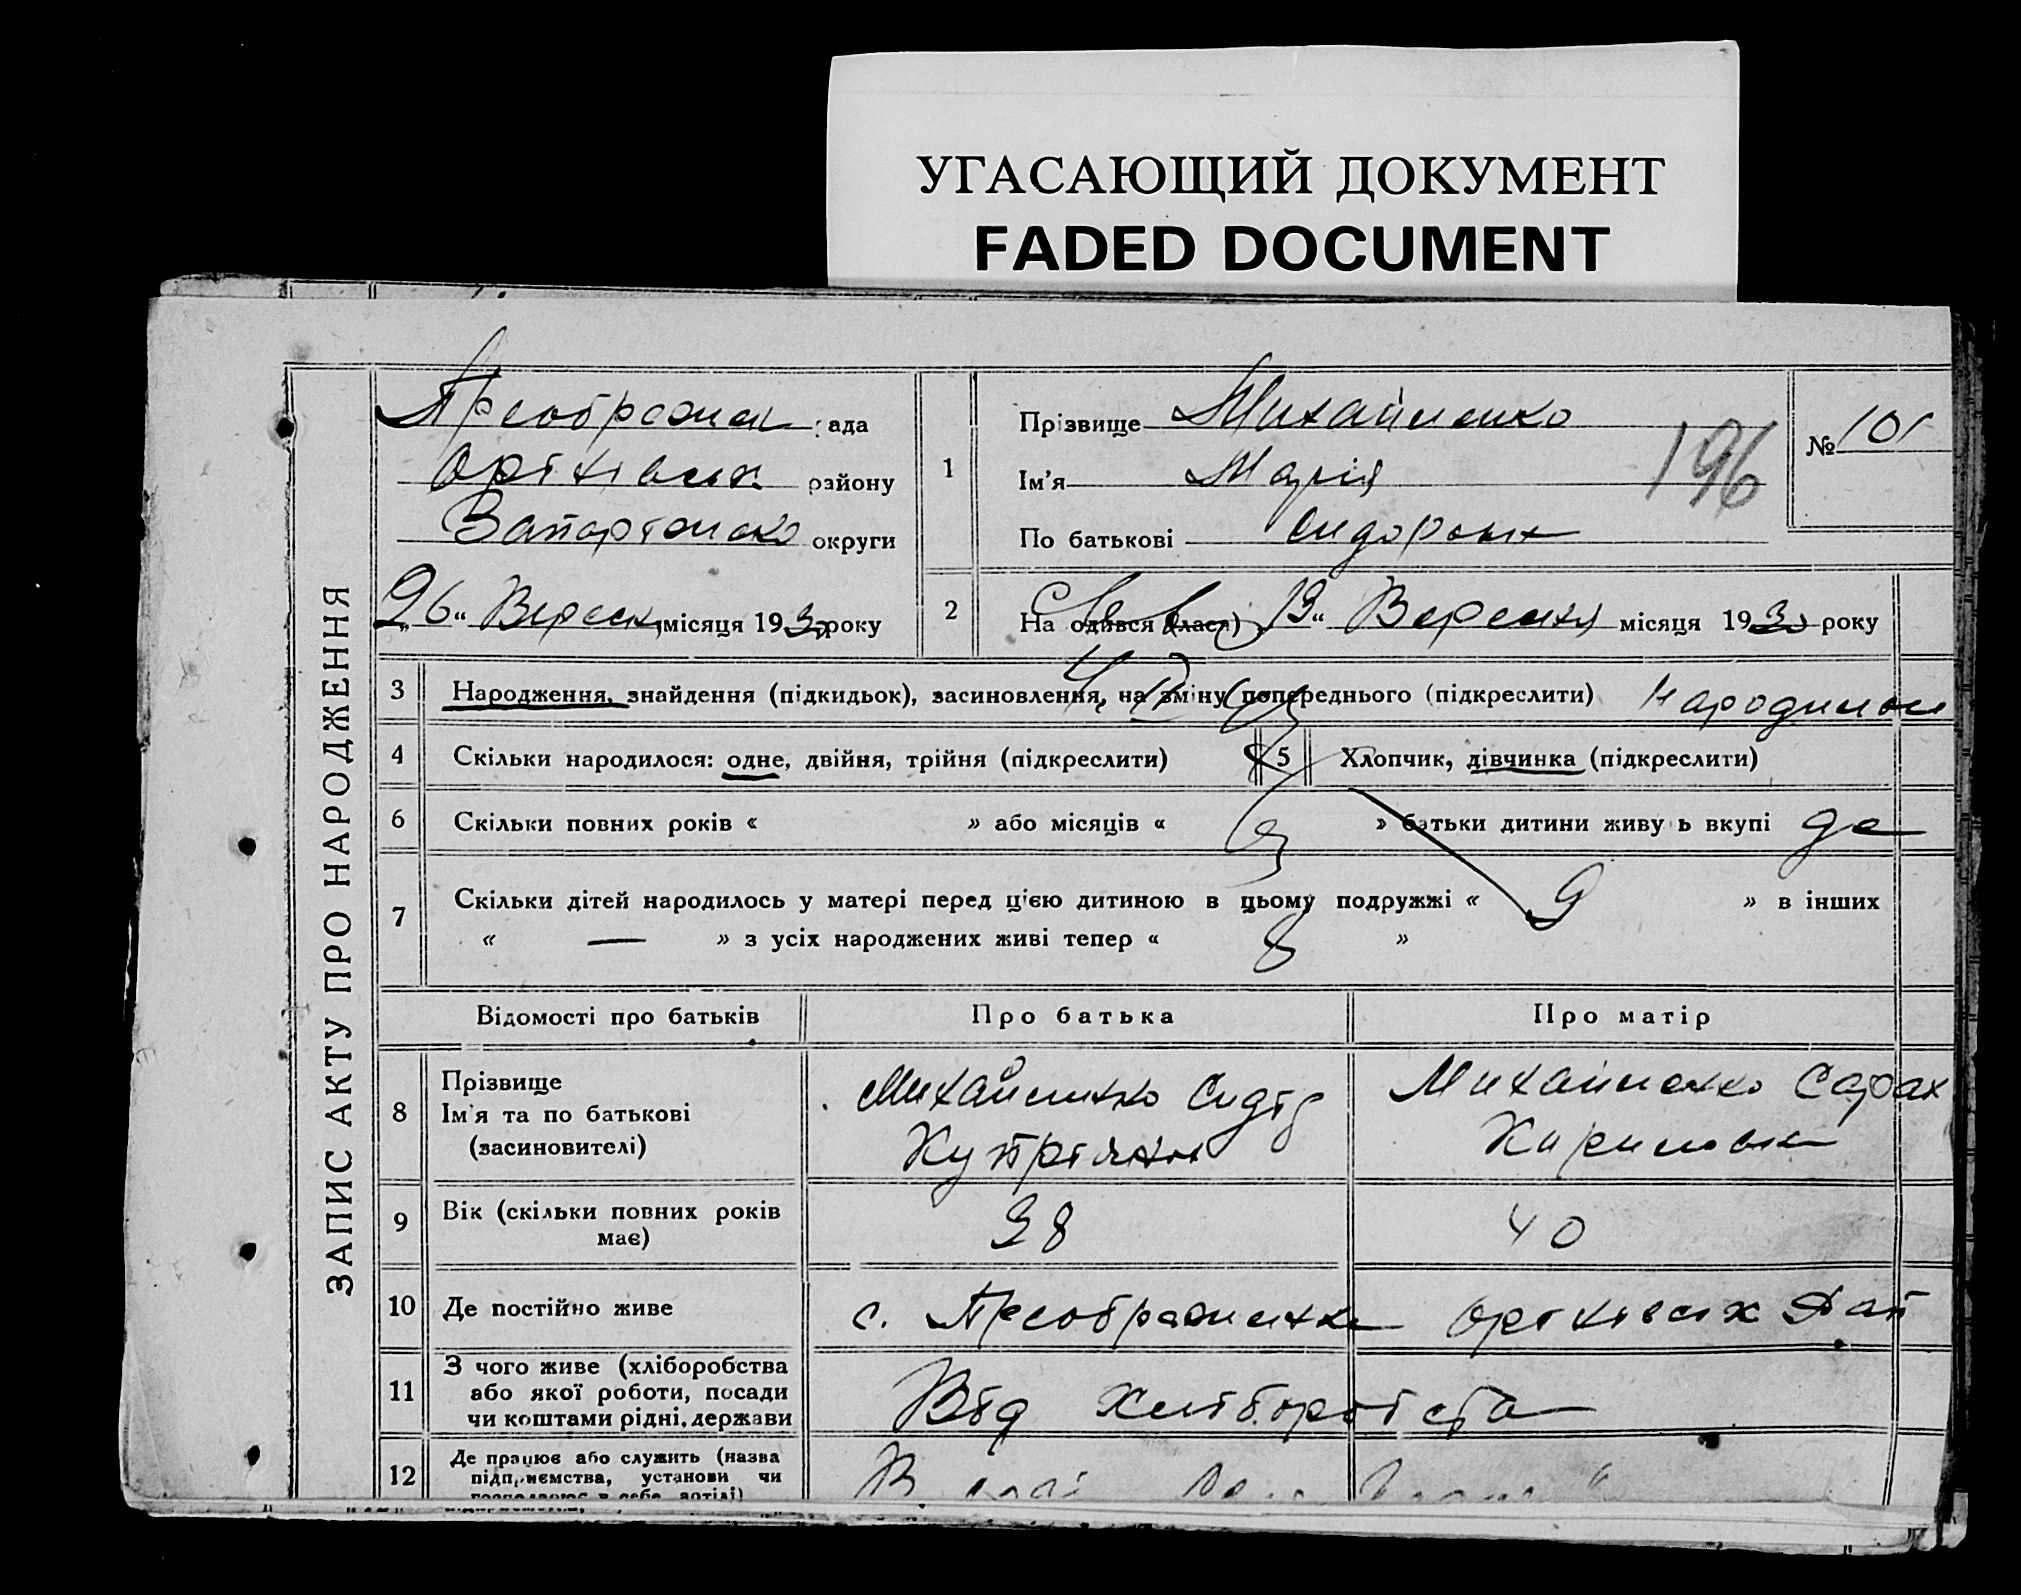 УГАСАЮЩИЙ ДОКУМЕНТ
FADED DOCUMENT
ЗАПИС АКТУ ПРО НАРОДЖЕННЯ
Преображен рада
Оріхівськ. району
округи
26 " Вересня місяця 1930 року
1
Прізвище Михайленко
Ім'я Марія
По батькові Сидоровн
196
№ 101
2
На одився влася) 19 " Вересня місяця 1930 року
3 Народження, знайдення (підкидьок), засиновлення, на зміну попереднього (підкреслити)
4 Скільки народилося: одне, двійня, трійня (підкреслити) 5 Хлопчик, дівчинка (підкреслити)
6 Скільки повних років « » або місяців « » батьки дитини живуть вкупі да
7 Скільки дітей народилось у матері перед цією дитиною в цьому подружжі « 9 » в інших
« — » з усіх народжених живі тепер « 8 »
Відомості про батьків Про батька Про матір
8 Прізвище
Ім'я та по батькові
(засиновителі)
Михайленко Сидір
Михайленко
Кириловна
9 Вік (скільки повних років
має)
38 40
10 Де постійно живе с. Преображенка Оріхівськ Рай
11 З чого живе (хліборобства
або якої роботи, посади
чи коштами рідні, держави
Від хліборобства
12 Де працює або служить (назва
підприємства, установи чи